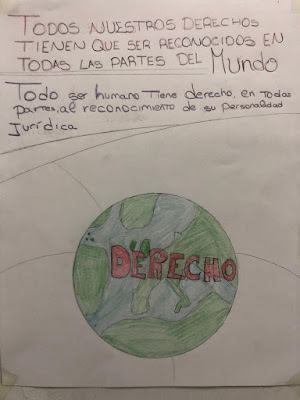 TODOS NUESTROS DERECHOS
TIENEN QUE SER RECONOCIDOS EN
TODAS LAS PARTES DEL Mundo
Todo ser humano Tiene derecho, en Todas
partes, al reconocimiento de su personalidad
Jurídica
DERECHO